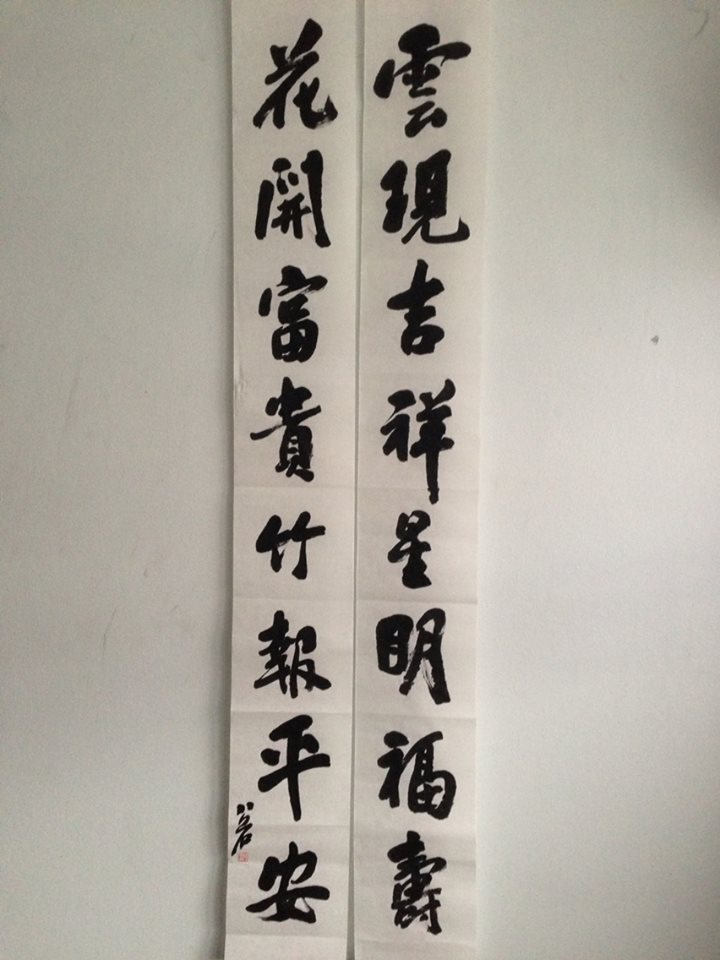 雲現吉祥星明福壽
花開富貴竹報平安